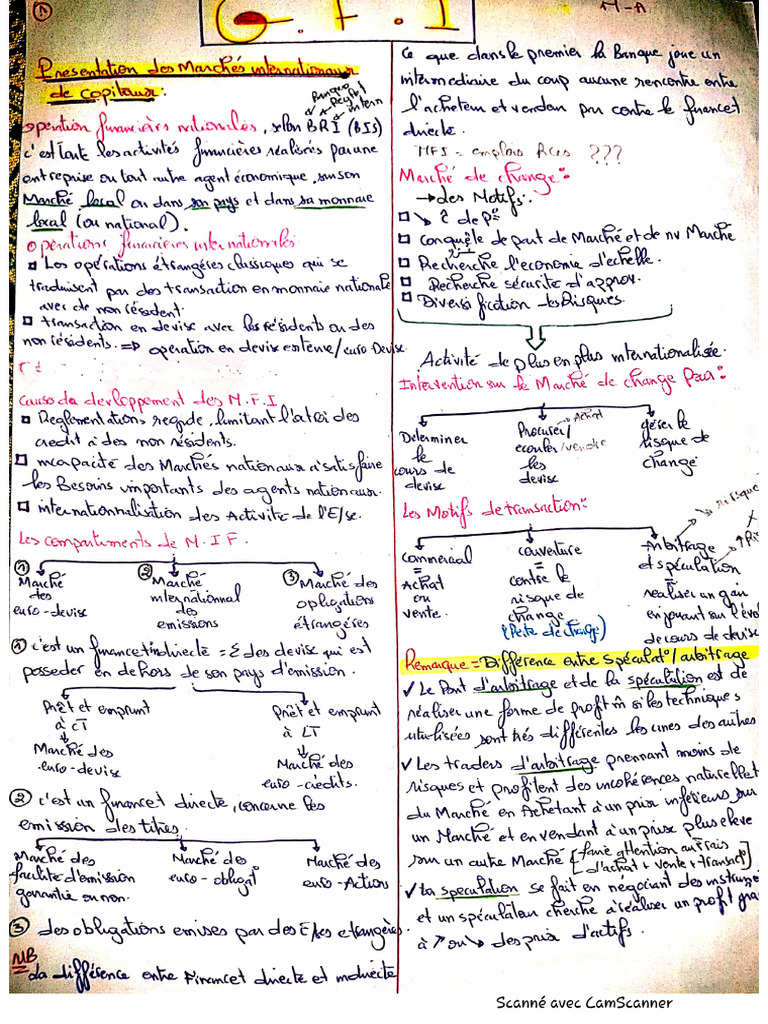 ①
G.F.I
M-A
Présentation des Marchés internationaux
de capitaux :
opération financières nationales, selon BRI (BIS)
Banque
Regl
intern
c'est toute les activités financières réalisées par une
entreprise ou tout autre agent économique, sur son
Marché local ou dans son pays et dans sa monnaie
local (ou national).
opérations financières internationales
Les opérations étrangères classiques qui se
traduisent par des transaction en monnaie nationale
avec de non résident.
transaction en devise avec les résidents ou des
non résidents. ⇒ opération en devise externe/euro Devise
cause da developpement des M.F.I
Reglementations regide, limitant l'atroi des
credit à des non résidents.
incapacité des Marchés nationaux à satisfaire
les Besoins importants des agents nationaux.
internationnalisation des Activité de l'E/se.
Les compartiments de M.I.F.
① Marché
des
euro-devise
② Marché
international
des
emissions
③ Marché des
obligations
étrangères
① c'est un financet indirecte = Σ des devise qui est
posseder en dehors de son pays d'émission.
Prêt et emprunt
à CT
Marché des
euro-devise
Prêt et emprunt
à LT
Marché des
euro-crédits.
② c'est un financet directe, concerne les
emission des titres.
Marché des
facilité d'émission
garantie ou non.
Marché des
euro-obligat°
Marché des
euro-Actions
③ des obligations emises par des E/ses etrangères.
NB
La différence entre Financet directe et indirecte
Ce que dans le premier la Banque joue un
intermediaire du coup aucune rencontre entre
l'acheteur et vendeur par contre le financet
directe.
MFI = emplois Rces ???
Marché de change :
→ des Motifs :
↘ ĉ de p°
conquête de part de Marché et de nv Marché
Recherche l'economie d'échelle.
Recherche sécurité d'approv.
Diversifiction des Risques.
Activité de plus en plus internationalisée.
Intervention sur le Marché de change Pour :
Determiner
le
cours de
devise
Procurer/
Achat
ecouler/vendre
les
devise
gérer le
risque de
change
Les Motifs de transaction :
↘ risque
commercial
=
Achat
ou
vente.
couverture
=
contre le
risque de
change
(Perte de change)
Arbitrage
et spéculation
=
realiser un gain
en jouant sur l'évol
de cours de devise
Remarque = Différence entre spéculat°/arbitrage
✓ Le Pont d'arbitrage et de la spéculation est de
réaliser une forme de profit m̂ si les techniques
utulisées sont très différentes les unes des autres
✓ Les traders d'arbitrage prennant moins de
risques et profitent des incohérences naturelles
du Marché en Achetant à un prix inférieurs sur
un Marché et en vendant à un prix plus eleve
sur un autre Marché [faire attention au frais
d'achat + vente + transact]
✓ La speculation se fait en négociant des instrume
et un spéculateur cherche à réaliser un profit gra
à ↗ ou ↘ des prix d'actifs.
Scanné avec CamScanner